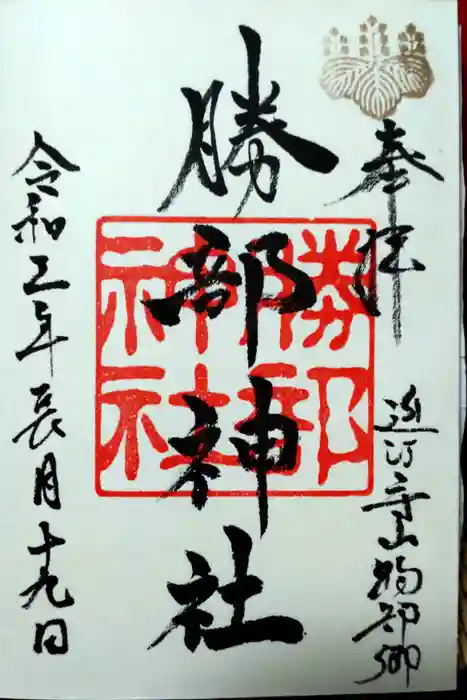 奉拝
近江守山物部郷
勝部神社
勝部
神社
令和三年長月十九日